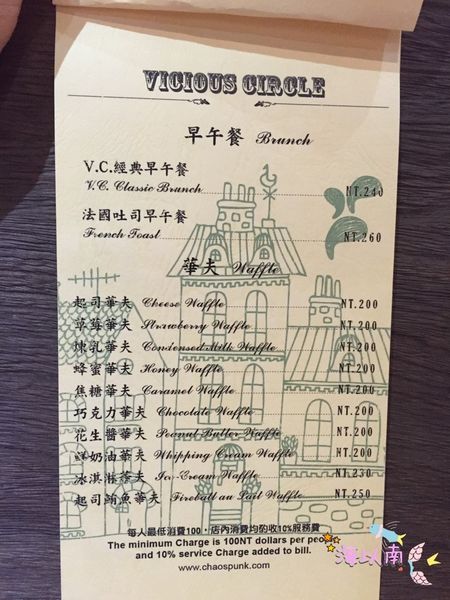 VICIOUS CIRCLE
早午餐 Brunch
V.C.經典早午餐
V.C. Classic Brunch NT.240
法國吐司早午餐
French Toast NT.260
華夫 Waffle
起司華夫 Cheese Waffle NT.200
草莓華夫 Strawberry Waffle NT.200
煉乳華夫 Condensed Milk Waffle NT.200
蜂蜜華夫 Honey Waffle NT.200
焦糖華夫 Caramel Waffle NT.200
巧克力華夫 Chocolate Waffle NT.200
花生醬華夫 Peanut Butter Waffle NT.200
鮮奶油華夫 Whipping Cream Waffle NT.200
冰淇淋華夫 Ice-Cream Waffle NT.230
起司鮪魚華夫 Fireball au Lait Waffle NT.250
每人最低消費100,店內消費均酌收10%服務費
The minimum Charge is 100NT dollars per people
and 10% service Charge added to bill.
www.chaospunk.com
以南